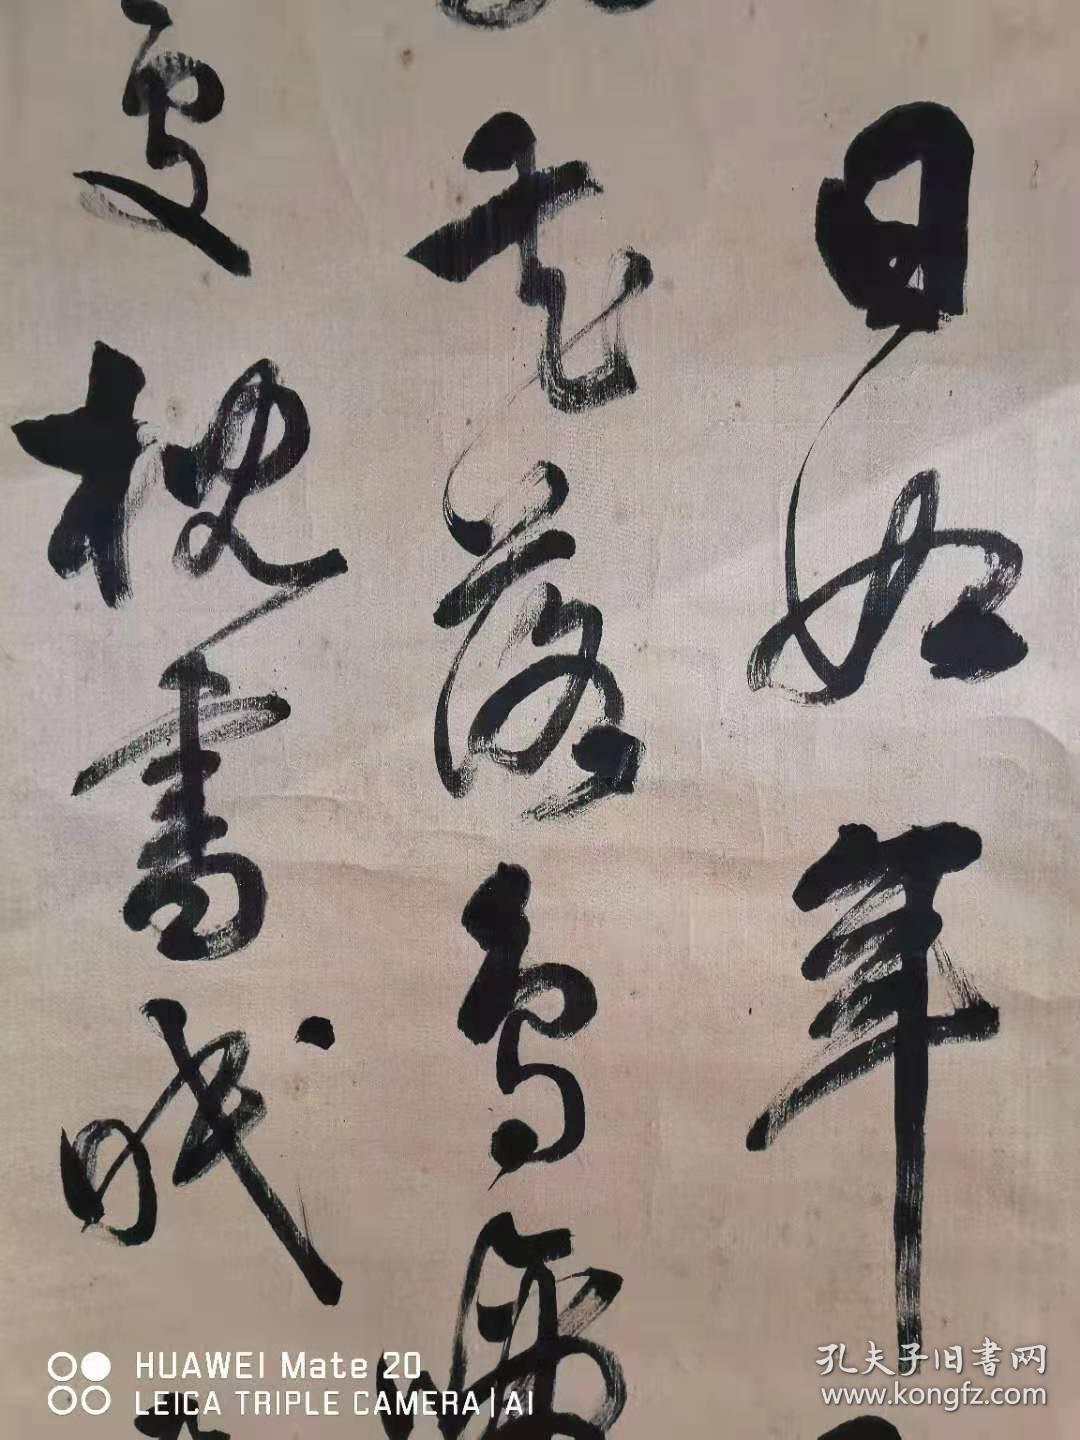 日如年
花落鳥啼
更枕書眠
HUAWEI Mate 20
LEICA TRIPLE CAMERA | AI
孔夫子旧書网
www.kongfz.com